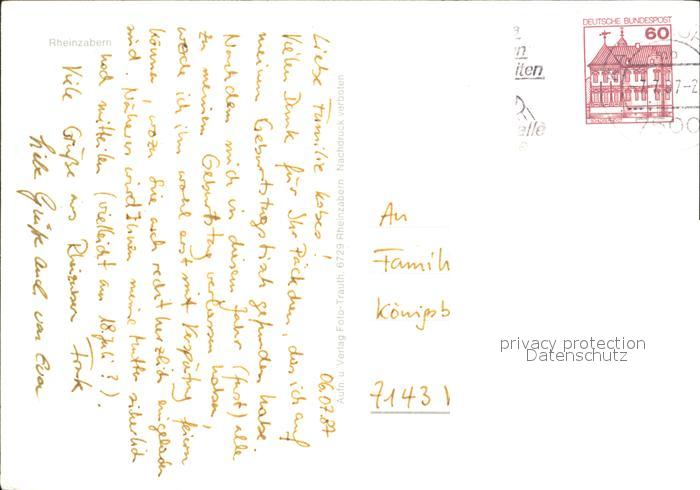 Rheinzabern
06.07.87
Liebe Familie Kobes!
Vielen Dank für Ihr Päckchen, das ich auf
meinem Geburtstagstisch gefunden habe.
Nachdem mich in diesem Jahr (fast) alle
zu meinem Geburtstag verlassen haben,
werde ich ihn wohl erst mit Verspätung feiern
können, wozu Sie auch recht herzlich eingeladen
sind. Näheres wird Ihnen meine Mutter sicherlich
noch mitteilen (vielleicht am 18. Juli?).
Viele Grüße aus Rheinzabern Frank
Liebe Grüße auch von Eva
Aufn. u. Verlag Foto-Trauth, 6729 Rheinzabern Nachdruck verboten
DEUTSCHE BUNDESPOST
60
An
Famili
Königsb
7143
privacy protection
Datenschutz